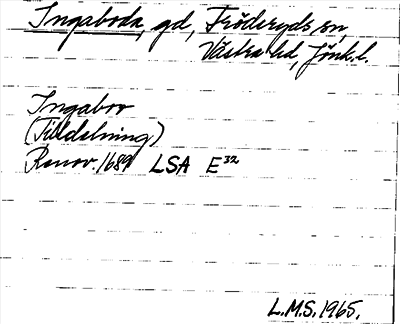 Ingaboda, gd, Fröderyds sn,
Västra hd, Jönk.l.
Ingabov
(Tilldelning)
Renov. 1689 LSA E³²
L.M.S. 1965.